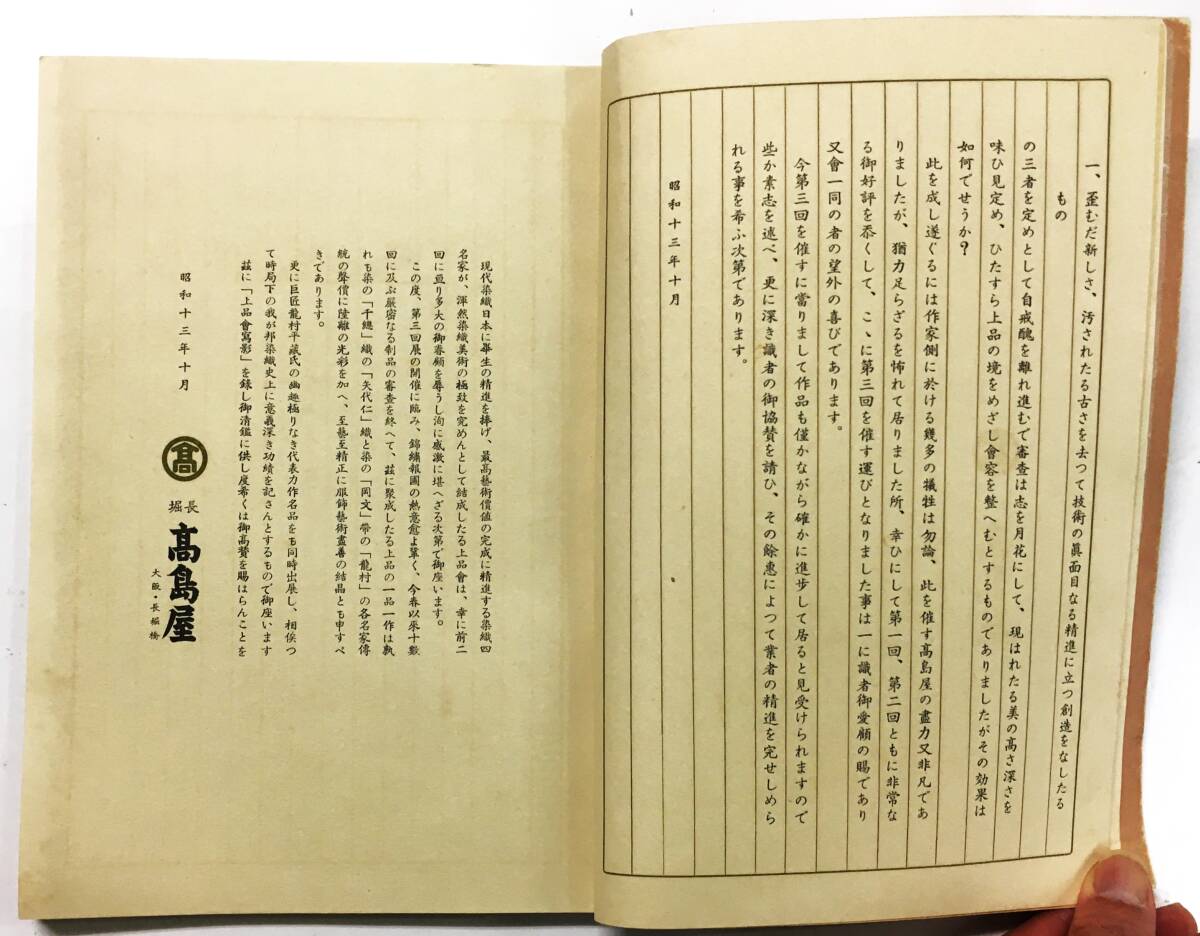 一、歪むだ新しさ、汚されたる古さを去つて技術の眞面目なる精進に立つ創造をなしたる
もの
の三者を定めとして自戒醜を離れ進むで審査は志を月花にして、現はれたる美の高さ深さを
味ひ見定め、ひたすら上品の境をめざし會容を整へむとするものでありましたがその効果は
如何でせうか？
此を成し遂ぐるには作家側に於ける幾多の犠牲は勿論、此を催す髙島屋の盡力又非凡であ
りましたが、猶力足らざるを怖れて居りました所、幸ひにして第一回、第二回ともに非常な
る御好評を忝くして、こゝに第三回を催す運びとなりました事は一に識者御愛顧の賜であり
又會一同の者の望外の喜びであります。
今第三回を催すに當りまして作品も僅かながら確かに進歩して居ると見受けられますので
些か素志を述べ、更に深き識者の御協賛を請ひ、その餘惠によつて業者の精進を完せしめら
れる事を希ふ次第であります。
昭和十三年十月
現代染織日本に畢生の精進を捧げ、最高藝術價値の完成に精進する染織四
名家が、渾然染織美術の極致を究めんとして結成したる上品會は、幸に前二
回に亘り多大の御眷顧を辱うし洵に感激に堪へざる次第で御座います。
この度、第三回展の開催に臨み、錦繡報國の熱意愈よ鞏く、今春以來十數
回に及ぶ嚴密なる制品の審査を終へて、茲に聚成したる上品の一品一作は孰
れも染の「千總」織の「矢代仁」織と染の「岡文」帶の「龍村」の各名家傳
統の聲價に陸離の光彩を加へ、至藝至精正に服飾藝術盡善の結晶とも申すべ
きであります。
更に巨匠龍村平藏氏の幽趣極りなき代表力作名品をも同時出展し、相俟つ
て時局下の我が邦染織史上に意義深き功績を記さんとするもので御座います
茲に「上品會寫影」を錄し御清鑑に供し度希くは御高贊を賜はらんことを
昭和十三年十月
髙
長堀
髙島屋
大阪・長堀橋